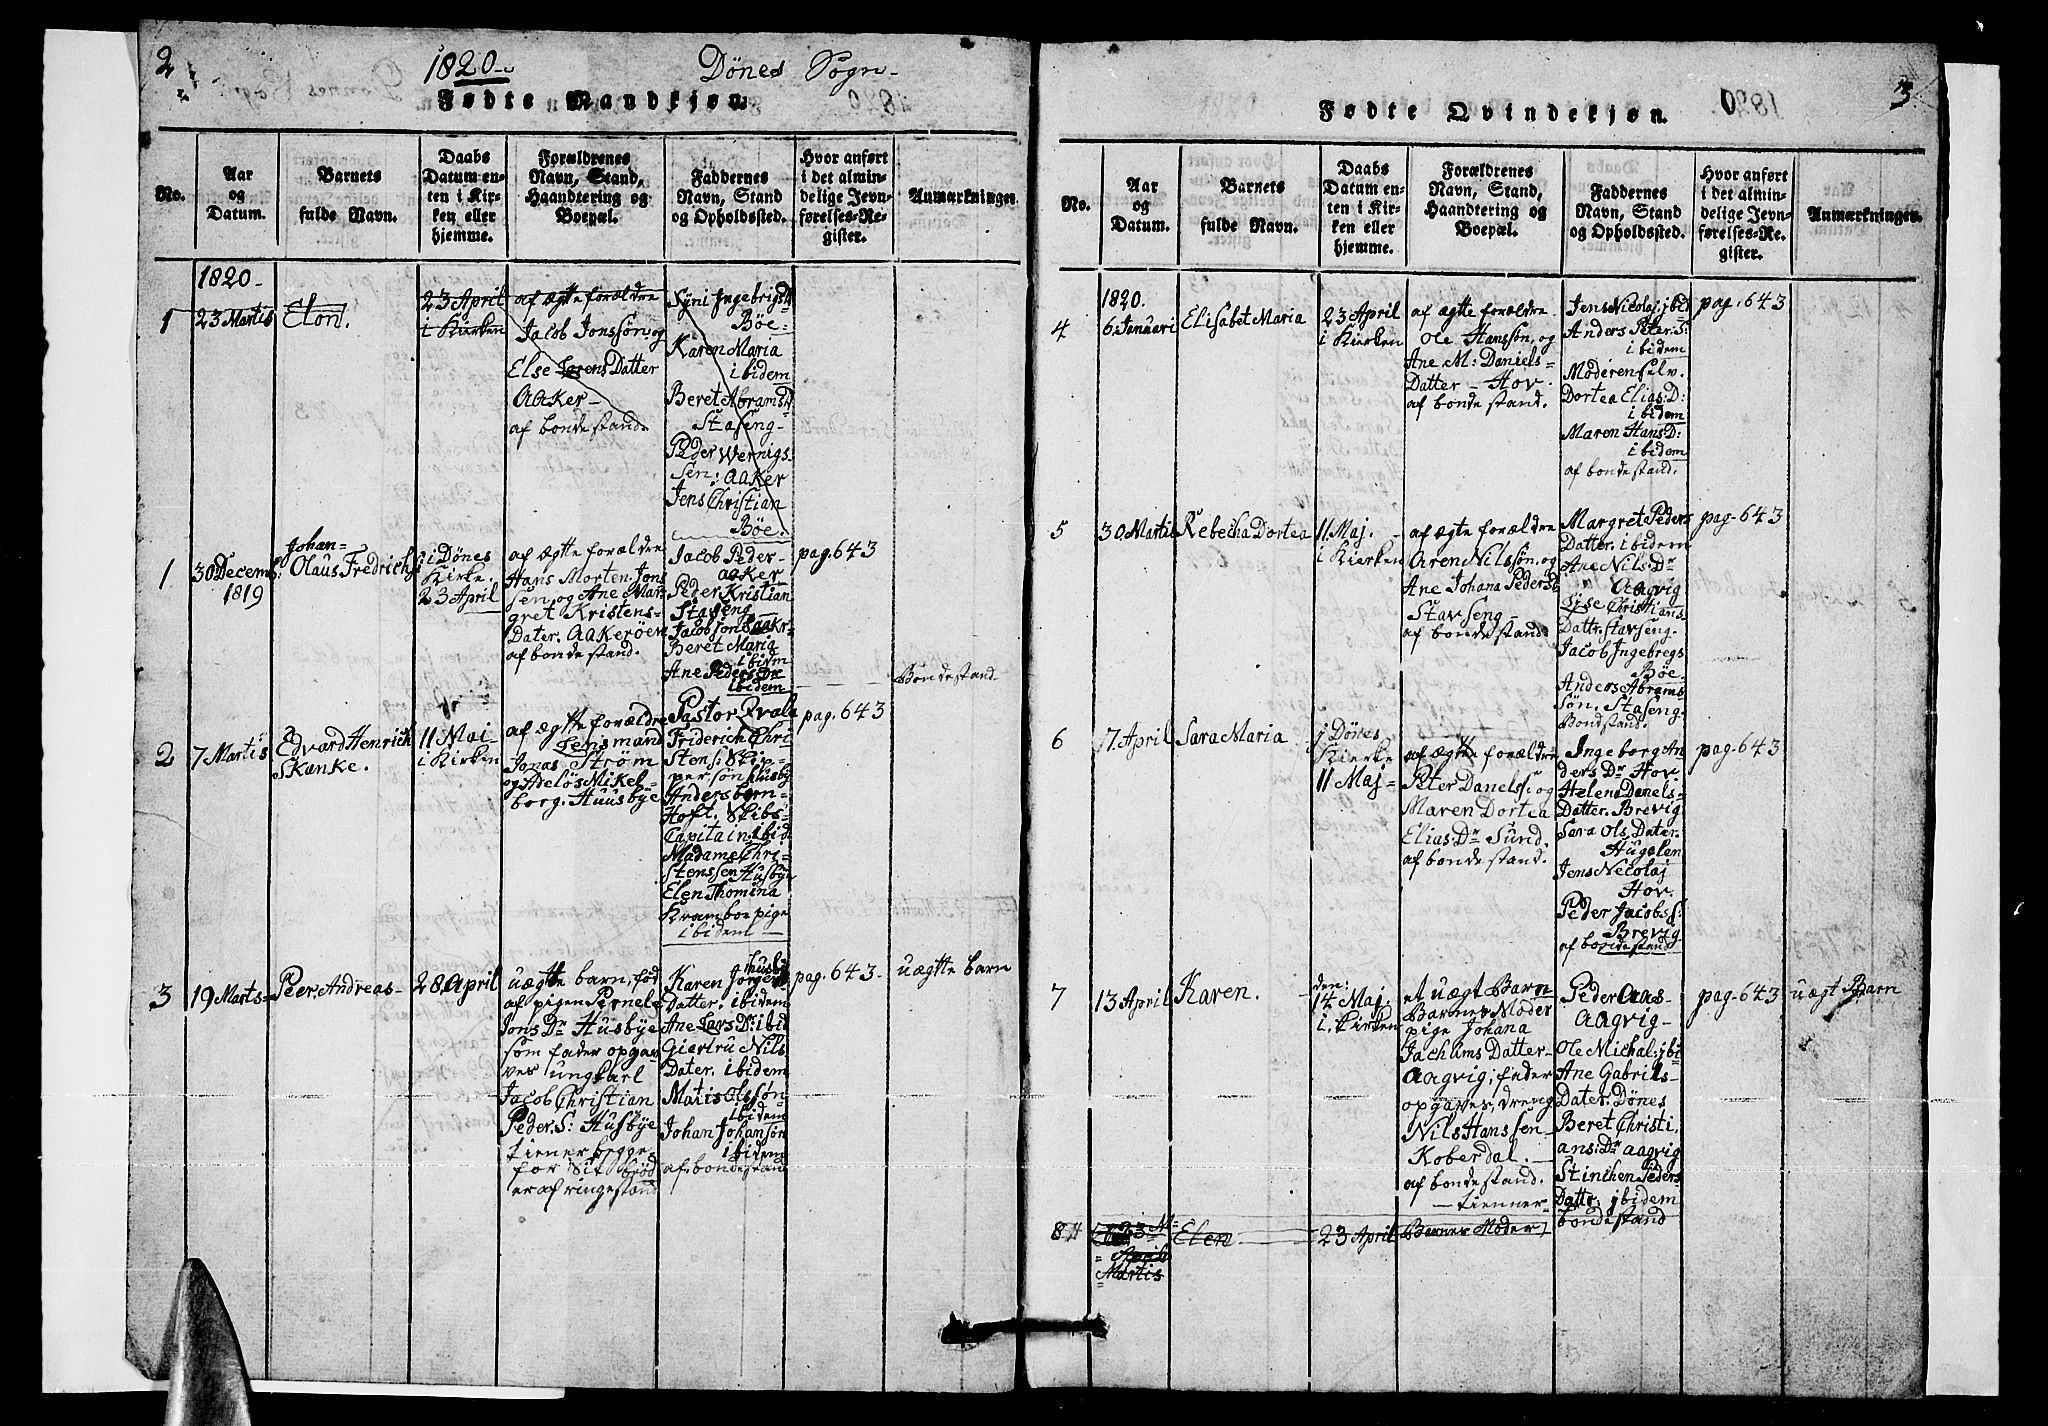 2
1820.
Dönes Sogn.
Fødte Mandkjøn.
No.
Aar
og
Datum.
Barnets
fulde Navn.
Daabs
Datum en-
ten i Kir-
ken eller
hjemme.
Forældrenes
Navn, Stand,
Haandtering og
Boepæl.
Faddernes
Navn, Stand
og Opholdssted.
Hvor anført
i det almin-
delige Jevn-
førelses-Re-
gister.
Anmærkninger
1820.
1
23 Martis
Elon.
23 April
i Kierken
af ægte forældre
Jacob Jonssøn, og
Else Datter
Aaker
af bonde stand.
Syni Ingebrigsd
Böe.
Karen Maria
ibidem
Beret Abramsd
Staseng
Peder Wernigs-
sen: Aaker
Jens Christian
Böe.
1
30 Decemb:
1819
Johan
Olaus Fredrich
i Dönes
Kirke.
23 April
af ægtte forældre
Hans Morten Jons
sen, og Ane Mar
gret Kristens-
Dater. Aakeröen
af bonde stand.
Jacob Peder-
aaker
Peder Kristian
Staseng
Jacob Jonsaakr-
Beret Maria
ibidm
Ane Peders Dr
ibidem
pag. 643
Bondestand
2
7 Martis
Edvard Henrich
Skanke.
11 Mai
i Kirken
af ægtte forældre
Lensmand
Jonas Strøm
og Adelös Mikel
borg. Huusbye
Pastor
Friderich Chri
stens: Skip-
persön husby
Anders born-
Hoft. Skibs-
Capitain: ibid
Madams Chri-
stenssen Husbye
Elen Thomina
Kramboe pige
ibidem
pag. 643
3
19 Marts
Peer, Andreas
28 April
uægtte barn, fød
af pigen Pernele
Jons Dr Husbye
som fader opga-
ves ungkarl
Jacob Christian
Peder. S: Husbye
tiener begge
for sit bröd
er af ringe stand
husby
Karen Jörgens
Datter. ibidem
Ane Lars Dr: ibid
Giertru Nils
Dater. ibidem
Matis Olssøn
ibidem
Johan Johansøn
ibidem
af bondestand
pag. 643
uægtte barn
3
Fødte Qvindekjøn.
1820.
No.
Aar
og
Datum.
Barnets
fulde Navn.
Daabs
Datum en-
ten i Kir-
ken eller
hjemme.
Forældrenes
Navn, Stand,
Haandtering og
Boepæl.
Faddernes
Navn, Stand
og Opholdssted.
Hvor anført
i det almin-
delige Jevn-
førelses-Re-
gister.
Anmærkninger.
1820.
4
6 Januari
Elisabet Maria
23 April
i Kierken
af ægte forældre
Ole Hanssøn, og
Ane M: Daniels-
Datter - Hov.
af bonde stand.
Jens Nicolaj, ibid
Anders Peter. S:
ibidem
Moderen selv.
Dortea Elias: D:
ibidem
Maren Hans: D:
ibidem
af bonde stand.
pag. 643
5
30 Martis
Rebecha Dortea
11 Maj.
i Kierken
af ægte forældre
Aren Nilssøn, og
Ane Johana Peders D
Stavseng
af bonde stand.
Margrete Peders
Datter. ibidem
Ane Nils: Dr
Aagvig
Sise Christians
Dattr. Stavseng.
Jacob Ingebregs
Böe.
Anders Abrams
Søn. Staseng.
Bondstand.
pag. 643
6
7. April
Sara Maria
j Dönes
Kierke
11 Maj
af ægtte forældre
Peter Danelss: og
Maren Dortea
Elias: Dr Sund.
af bonde stand.
Ingeborg An
ders Dr Hov
Helena Danels-
Datter. Brevig
Sara Ols, Dater.
Hügelen
Jens Necolaj
Hov.
Peder Jacobs S:
Brevig
af bondestand
pag. 643
7
13 April
Karen.
den:
14 Maj.
i. Kirken
et uægt Barn
Barnes Moder
pige Johana
Jachums Datter
Aagvig; fader
opgaves, dreng
Nils Hanssen
Koberdal.
af bondestand.
tienner
Peder Aas-
Aagvig
Ole Michal: ibi
Ane Gabriels-
Dater. Dönes
Beret Christi,
ans: Dr aagvig
Stinchen Peders
Dattr: ibidem
bondestand
pag. 643
uægt Barn
8
23 M:
April
Martis
Elen
23 April
Barnes Moder